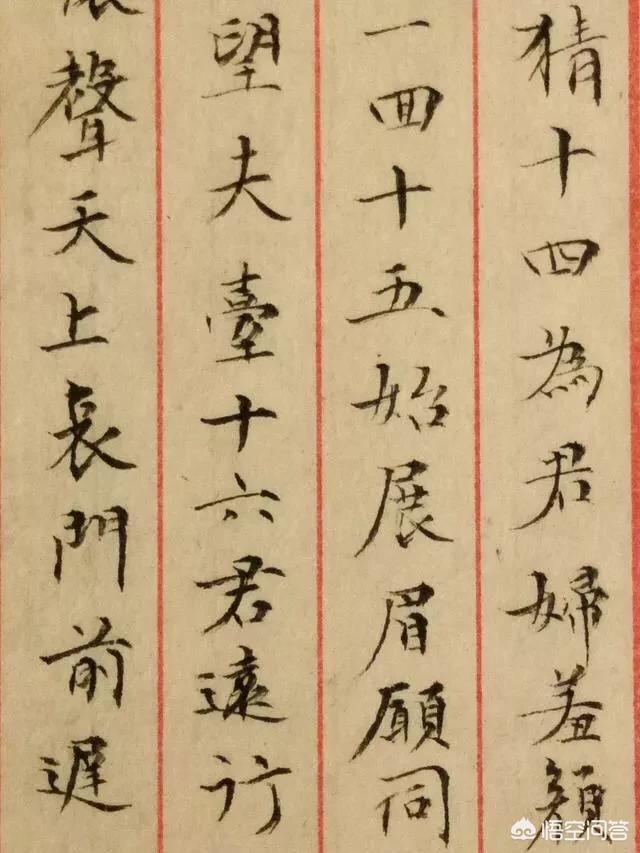 猜十四為君婦羞顏
一囬十五始展眉願同
望夫臺十六君遠行
聲天上哀門前遲
悟空问答